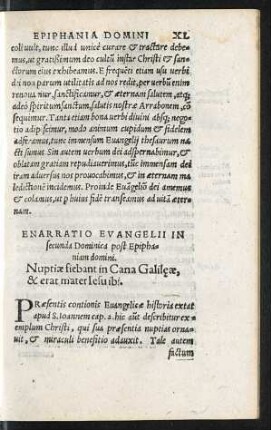 EPIPHANIA DOMINI XL
coli uult, tunc illud unicè curare & tractare debe-
mus, ut gratißimum deo cultũ instar Christi & san-
ctorum eius exhibeamus. E frequẽti etiam usu uerbi
diui non parum utilitatis ad nos redit, per uerbũ enim
renouamur, sanctificamur, & æternam salutem, atq;
adeò spiritum sanctum, salutis nostræ Arrabonem, cõ
sequimur. Tanta etiam bona uerbi diuini absq; nego-
tio adipiscimur, modo animum cupidum & fidelem
adferamus, tunc immensum Euangelij thesaurum na-
cti sumus. Sin autem uerbum dei adspernabimur, &
oblatam gratiam repudiauerimus, tũc immensam dei
iram aduersus nos prouocabimus, & in æternam ma-
ledictionẽ incidemus. Proinde Euãgeliõ dei amemus
& colamus, ut p huius fidẽ transeamus ad uitã æter-
nam.
ENARRATIO EVANGELII IN
secunda Dominica post Epipha-
niam domini.
Nuptiæ fiebant in Cana Galilęæ,
& erat mater Iesu ibi.
PRæsentis contionis Euangelicæ historia extat
apud S. Ioannem cap. 2. hic aũt describitur ex-
emplum Christi, qui sua præsentia nuptias orna-
uit, & miraculi beneficio adauxit. Tale autem
factum